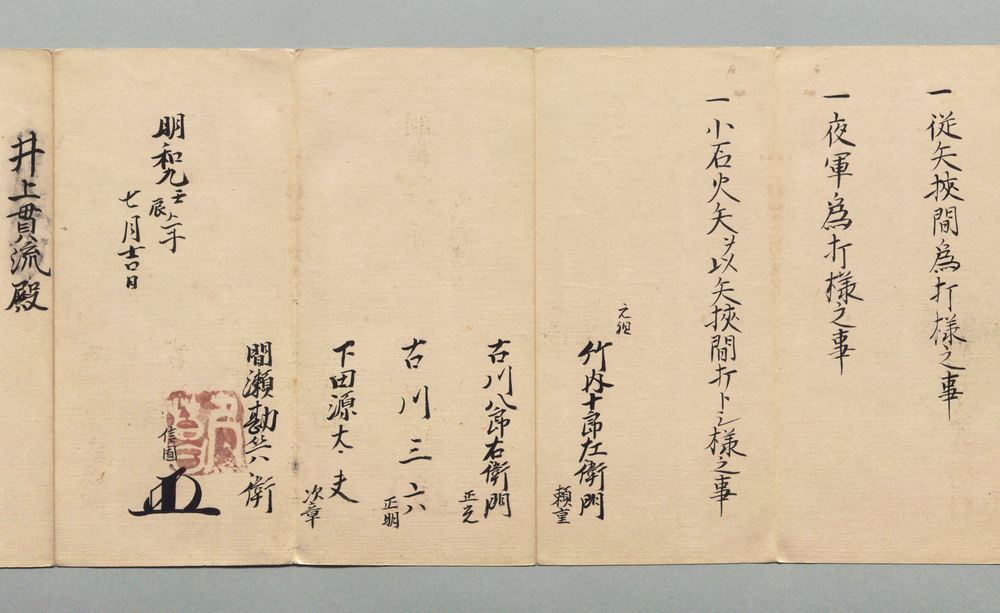 一従矢挾間為打様之事
一夜軍為打様之事
一小石火矢ヲ以矢挾間打卜之様之事
元祖
竹内十郎左衛門
頼重
古川八郎右衛門
正光
古川三六
正明
下田源太夫
次章
間瀬勘兵衛
信固
明和九壬辰年
七月吉日
井上貫流殿